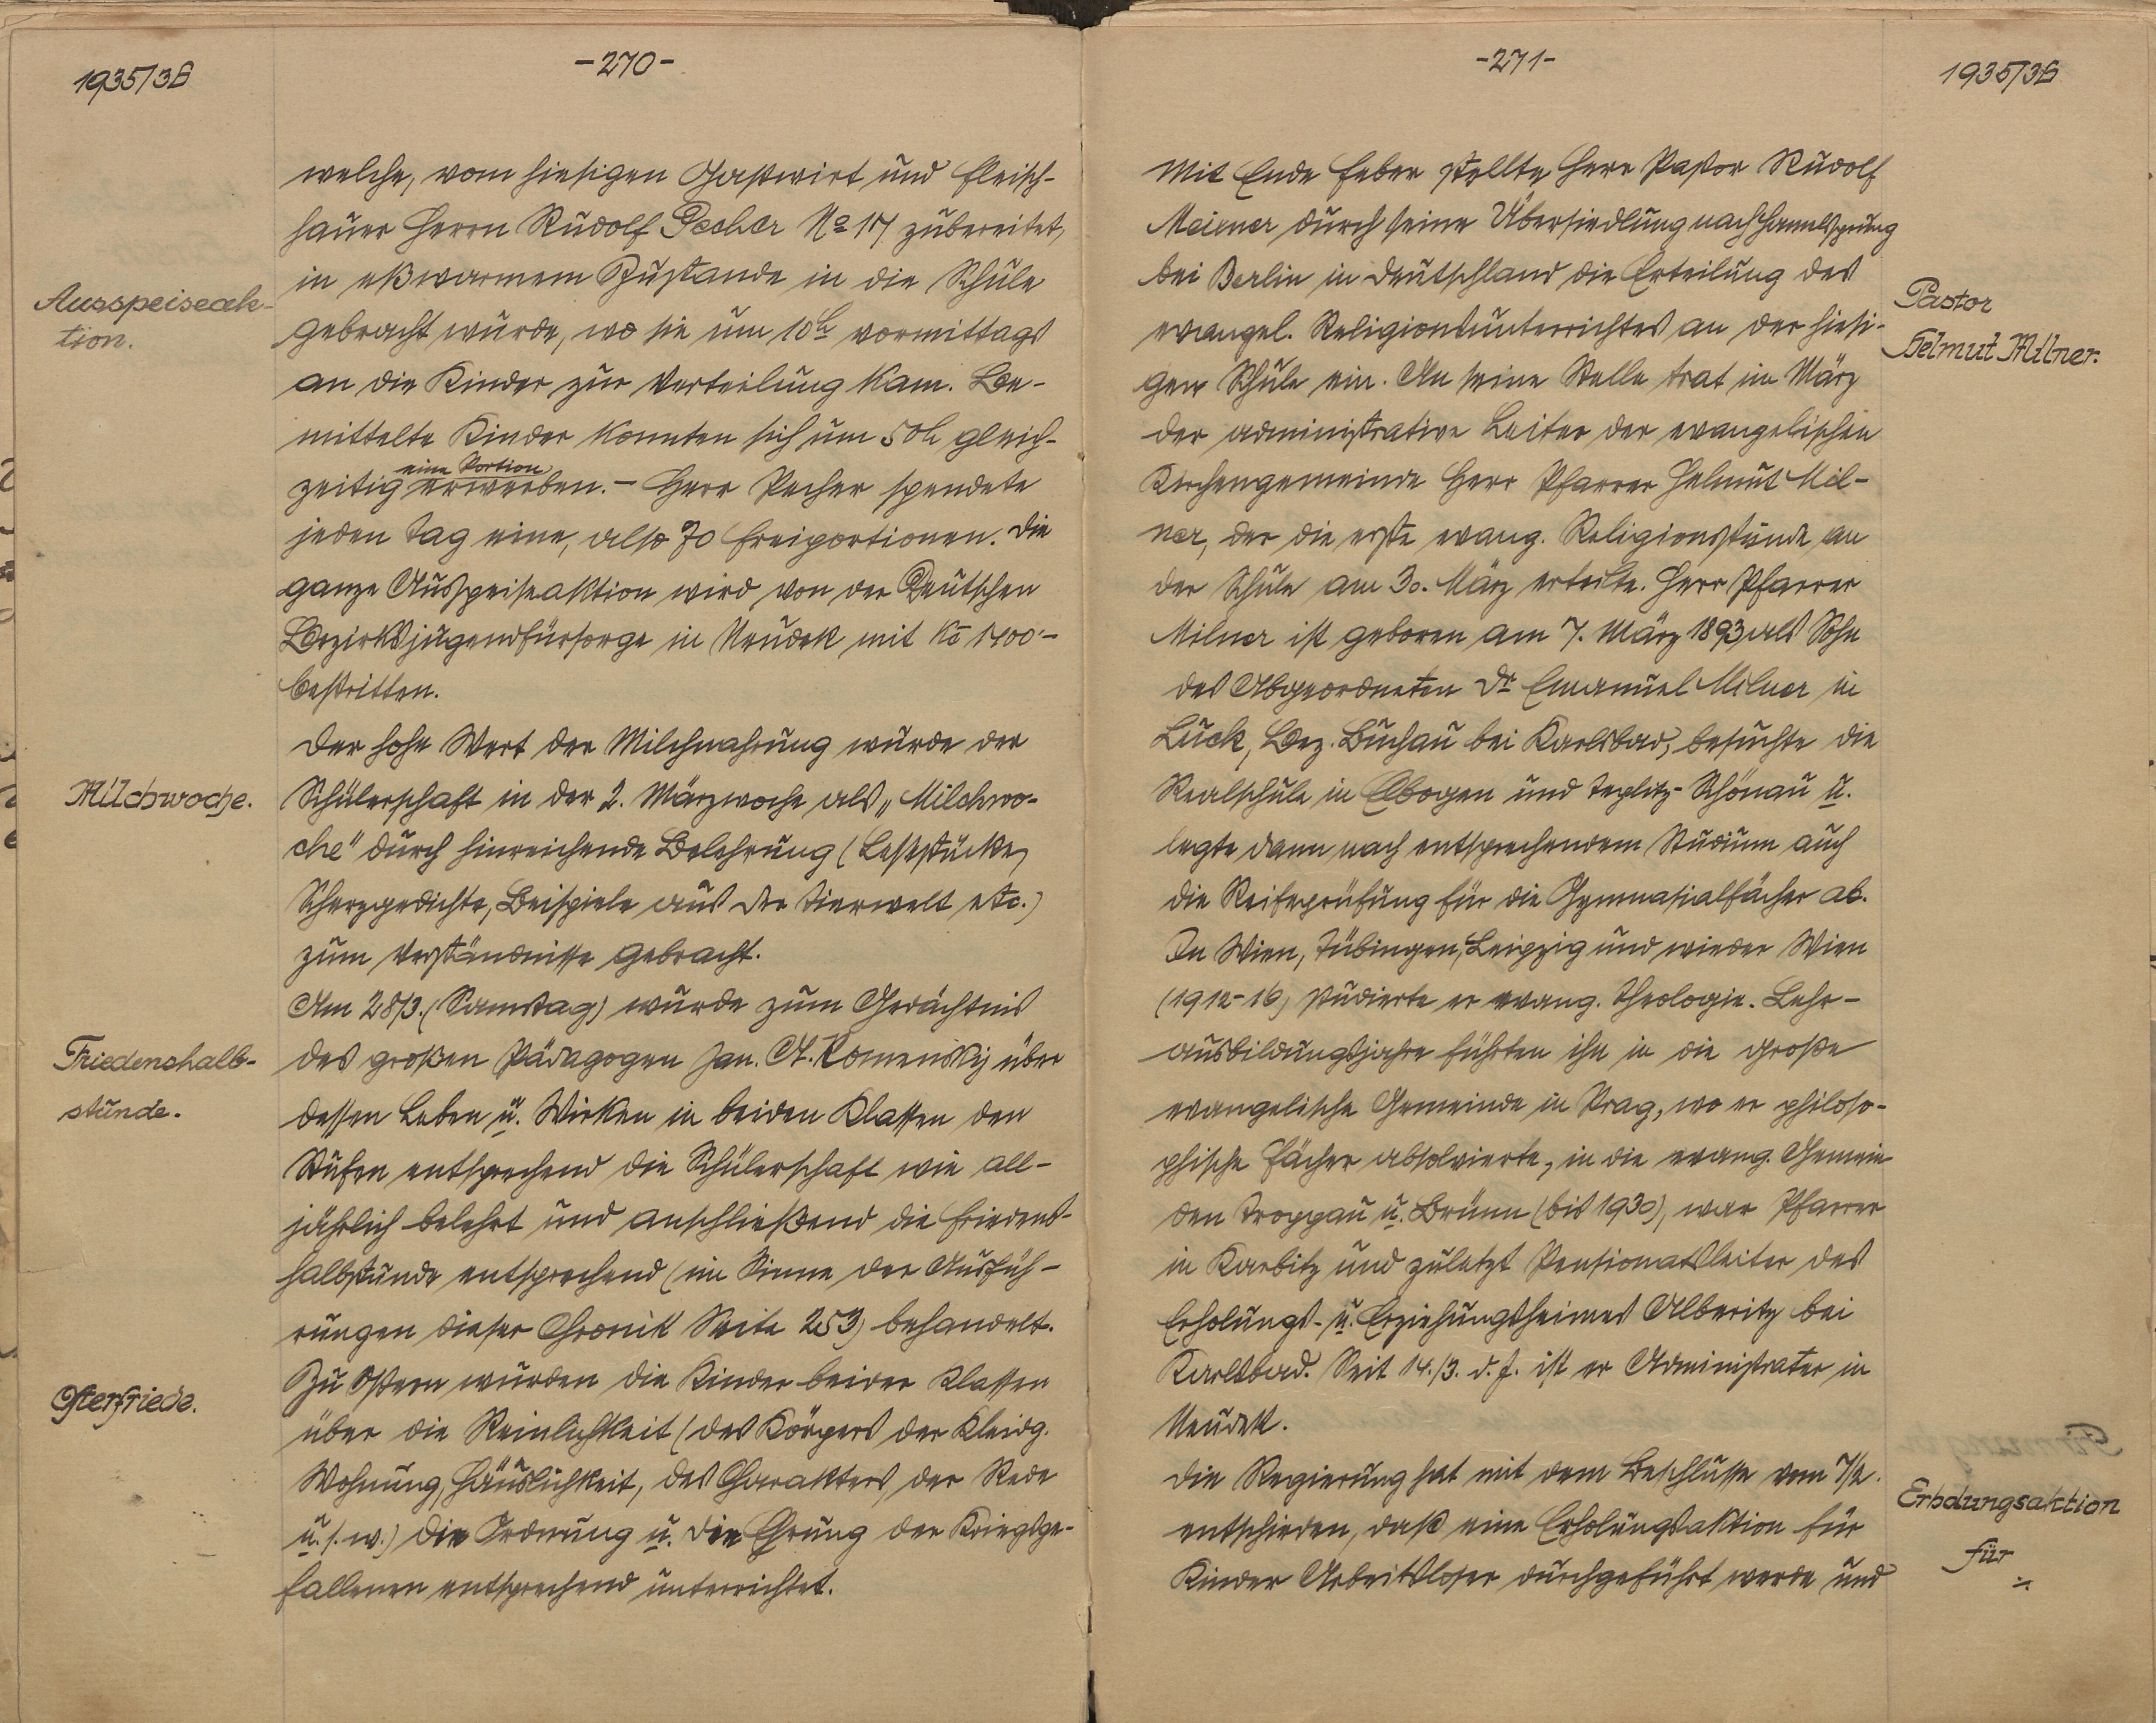 1935/36
-270-
welche, vom hiesigen Gastwirt und Fleisch-
hauer Herrn Rudolf Pecher No 17 zubereitet,
in eßwarmem Zustande in die Schule
Ausspeiseak-
tion.
gebracht wurde, wo sie um 10h vormittags
an die Kinder zur Verteilung kam. Be-
mittelte Kinder konnten sich um 50h gleich-
zeitig eine Portion erwerben. – Herr Pecher spendete
jeden Tag eine, also 70 Freiportionen. Die
ganze Ausspeiseaktion wird von der Deutschen
Bezirksjugendfürsorge in Neudek mit Kč 1400·–
bestritten.
Der hohe Wert der Milchnahrung wurde der
Milchwoche.
Schülerschaft in der 2. Märzwoche als „Milchwo-
che" durch hinreichende Belehrung (Lesestücke,
Scherzgedichte, Beispiele aus der Tierwelt etc.)
zum Verständnisse gebracht.
Am 28/3. (Samstag) wurde zum Gedächtnis
Friedenshalb-
stunde.
des großen Pädagogen Jan. A. Komenský über
dessen Leben u. Wirken in beiden Klassen den
Stufen entsprechend die Schülerschaft wie all-
jährlich belehrt und anschließend die Friedens-
halbstunde entsprechend (im Sinne der Ausfüh-
rungen dieser Chronik Seite 253) behandelt.
Zu Ostern wurden die Kinder beider Klassen
Osterfriede.
über die Reinlichkeit (des Körpers der Kleidg.
Wohnung, Häuslichkeit, des Charakters, der Rede
u. s. w.) die Ordnung u. die Ehrung der Kriegsge-
fallenen entsprechend unterrichtet.
-271-
1935/36
Mit Ende Feber stellte Herr Pastor Rudolf
Meixner durch seine Übersiedlung nach Hammelspring
bei Berlin in Deutschland die Erteilung des
Pastor
Helmut Milner.
evangel. Religionsunterrichtes an der hiesi-
gen Schule ein. An seine Stelle trat im März
der administrative Leiter der evangelischen
Kirchengemeinde Herr Pfarrer Helmut Mil-
ner, der die erste evang. Religionsstunde an
der Schule am 30. März erteilte. Herr Pfarrer
Milner ist geboren am 7. März 1893 als Sohn
des Abgeordneten Dr Emanuel Milner in
Luck, Bez. Buchau bei Karlsbad, besuchte die
Realschule in Elbogen und Teplitz-Schönau u.
legte dann nach entsprechendem Studium auch
die Reifeprüfung für die Gymnasialfächer ab.
In Wien, Tübingen, Leipzig und wieder Wien
(1912-16) studierte er evang. Theologie. Lehr-
ausbildungsjahre führten ihn in die große
evangelische Gemeinde in Prag, wo er philoso-
phische Fächer absolvierte, in die evang. Gemein-
den Troppau u. Brünn (bis 1930), war Pfarrer
in Karbitz und zuletzt Pensionatsleiter des
Erholungs- u. Erziehungsheimes Alberitz bei
Karlsbad. Seit 14./3. d. J. ist er Administrator in
Neudek.
Die Regierung hat mit dem Beschlusse vom 7/2.
Erholungsaktion
für
./.
entschieden, daß eine Erholungsaktion für
Kinder Arbeitsloser durchgeführt werde und